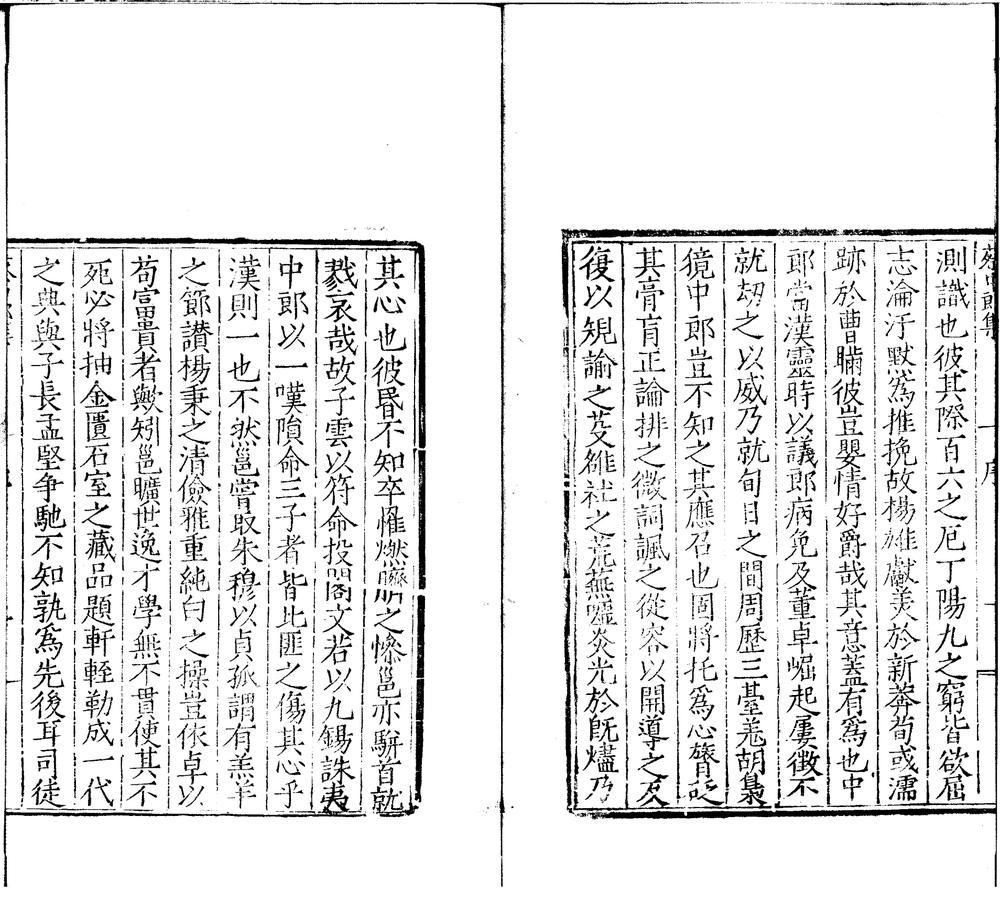 蔡中郎集 序
測識也彼其際百六之厄丁陽九之窮皆欲屈
志淪汙默為推挽故楊雄獻美於新莽荀彧濡
跡於曹瞞彼豈嬰情好爵哉其意蓋有為也中
郎當漢靈時以議郎病免及董卓崛起屢徵不
就刧之以威乃就旬日之間周歷三臺羗胡梟
獍中郎豈不知之其應召也固將托為心膂
其膏肓正論排之微詞諷之從容以開導之反
復以規諭之芟雒社之荒蕪噓炎光於旣燼乃
其心也彼昬不知卒罹燃臍之慘邕亦駢首就
戮哀哉故子雲以符命投閣文若以九錫誅夷
中郎以一嘆隕命三子者皆比匪之傷其心乎
漢則一也不然邕嘗取朱穆以貞孤謂有羔羊
之節讃楊秉之清儉雅重純白之操豈依卓以
苟富貴者歟矧邕曠世逸才學無不貫使其不
死必將抽金匱石室之藏品題軒輊勒成一代
之典與子長孟堅争馳不知孰為先後耳司徒